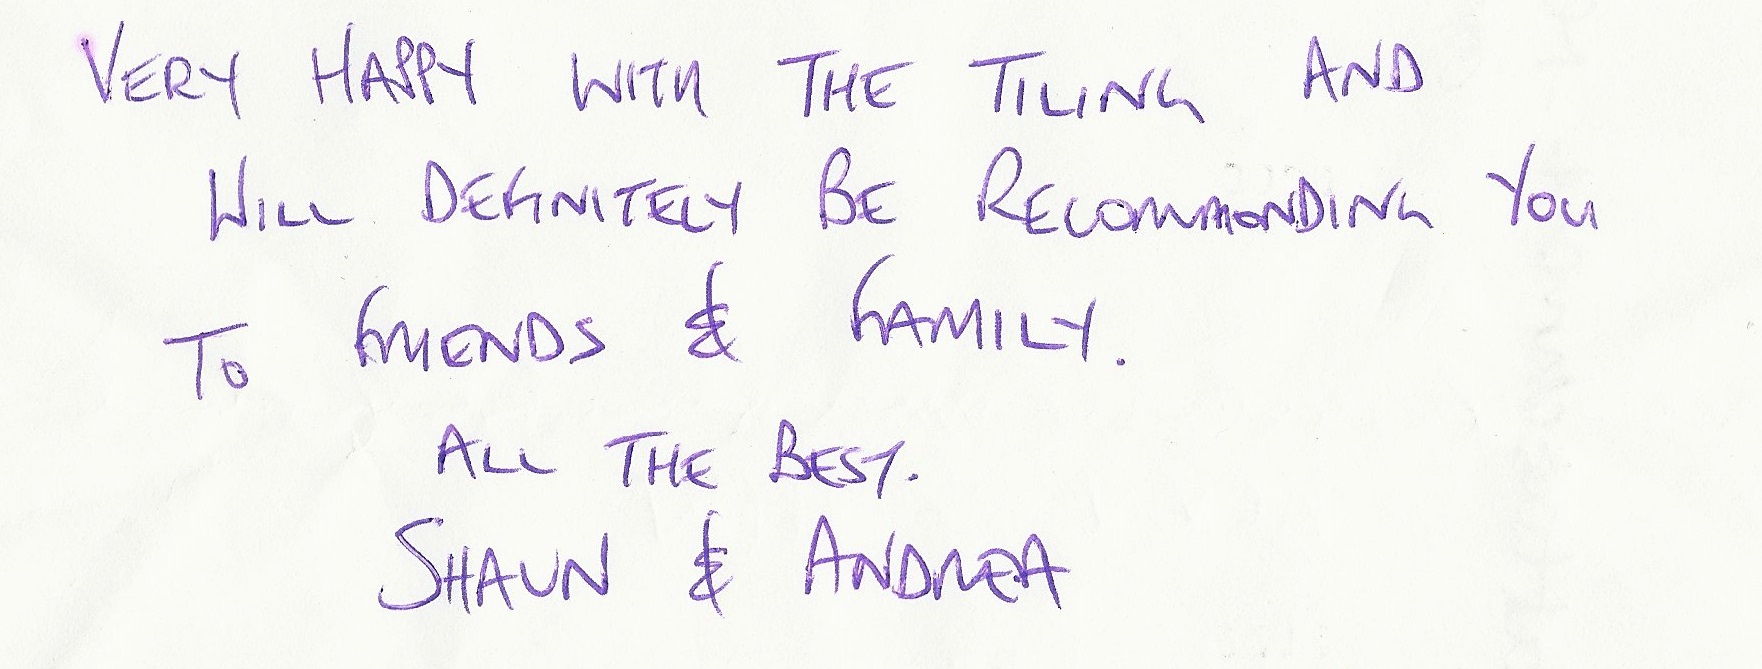 VERY HAPPY WITH THE TILING AND
WILL DEFINITELY BE RECOMMONDING YOU
TO FRIENDS & FAMILY.
ALL THE BEST.
SHAUN & ANDREA